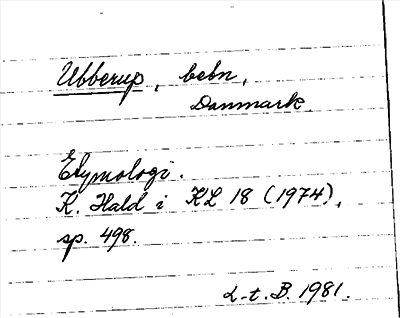 Ubberup, bebn,
Danmark.
Etymologi.
K. Hald i KL 18 (1974),
sp. 498.
L-t. B. 1981.